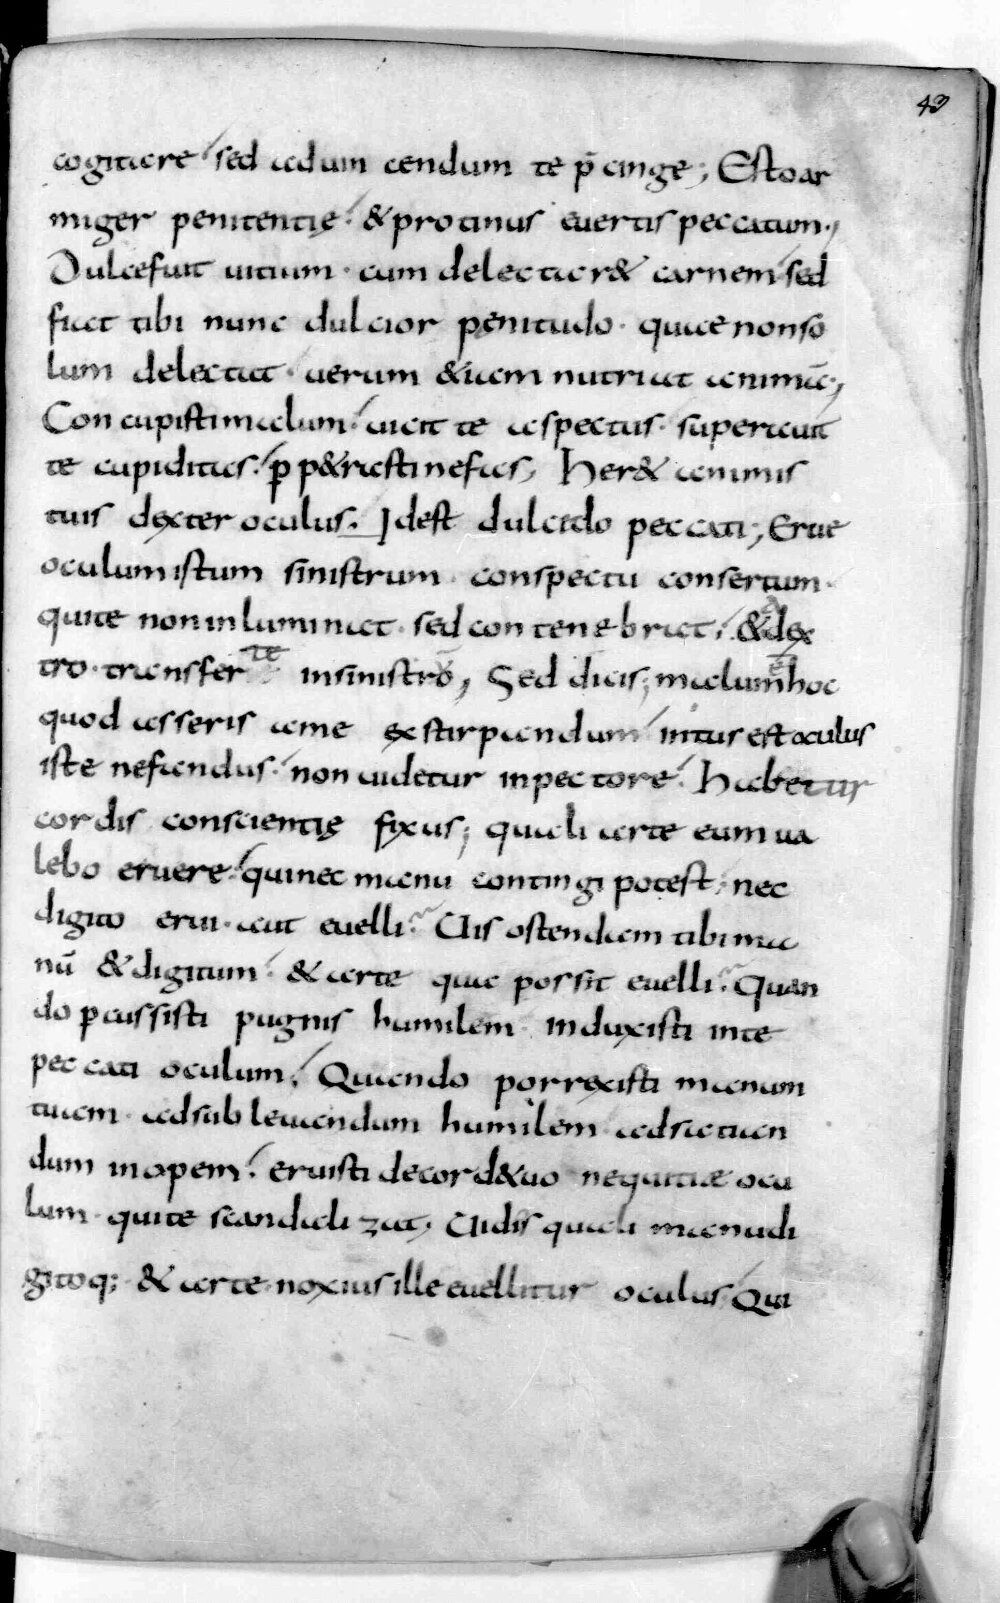 43
cogitare sed ad uin cendum te p̄ cinge; Esto ar
miger penitentię · & protinus euertis peccatum ·,
Dulce fuit uitium · cum delectar& carnem · sed
fiat tibi nunc dulcior penitudo · quae non so
lum delectat · uerum &iam nutriat animā ·,
Concupisti malum · uicit te aspectus · superauit
te cupiditas · p p&rasti nefas, Her& animis
tuis dexter oculus · Idest dulcido peccati ·, Erue
oculum istum sinistrum · conspectu consertum ·
qui te non inluminat · sed contenebrat · & a dex
tro · transfer te in sinistrō, Sed dicis; malum ē hoc
quod asseris a me exstirpandum intus est oculus
iste nefandus · non uidetur in pectore · Habetur
cordis conscientię fixus; quali arte eum ua
lebo eruere · qui nec manu contingi potest · nec
digito erui · aut euelli · Uis ostendam tibi ma
nū & digitum · & arte qua possit euelli · Quan
do pcussisti pugnis humilem · induxisti in te
peccati oculum · Quando porrexisti manum
tuam · ad subleuandum humilem · ad satian
dum inopem · eruisti de cord& uo nequitiæ ocu
lum · qui te scandalizat, Uidis quali manu di
gitoq; · & arte · noxius ille euellitur oculus, Qui